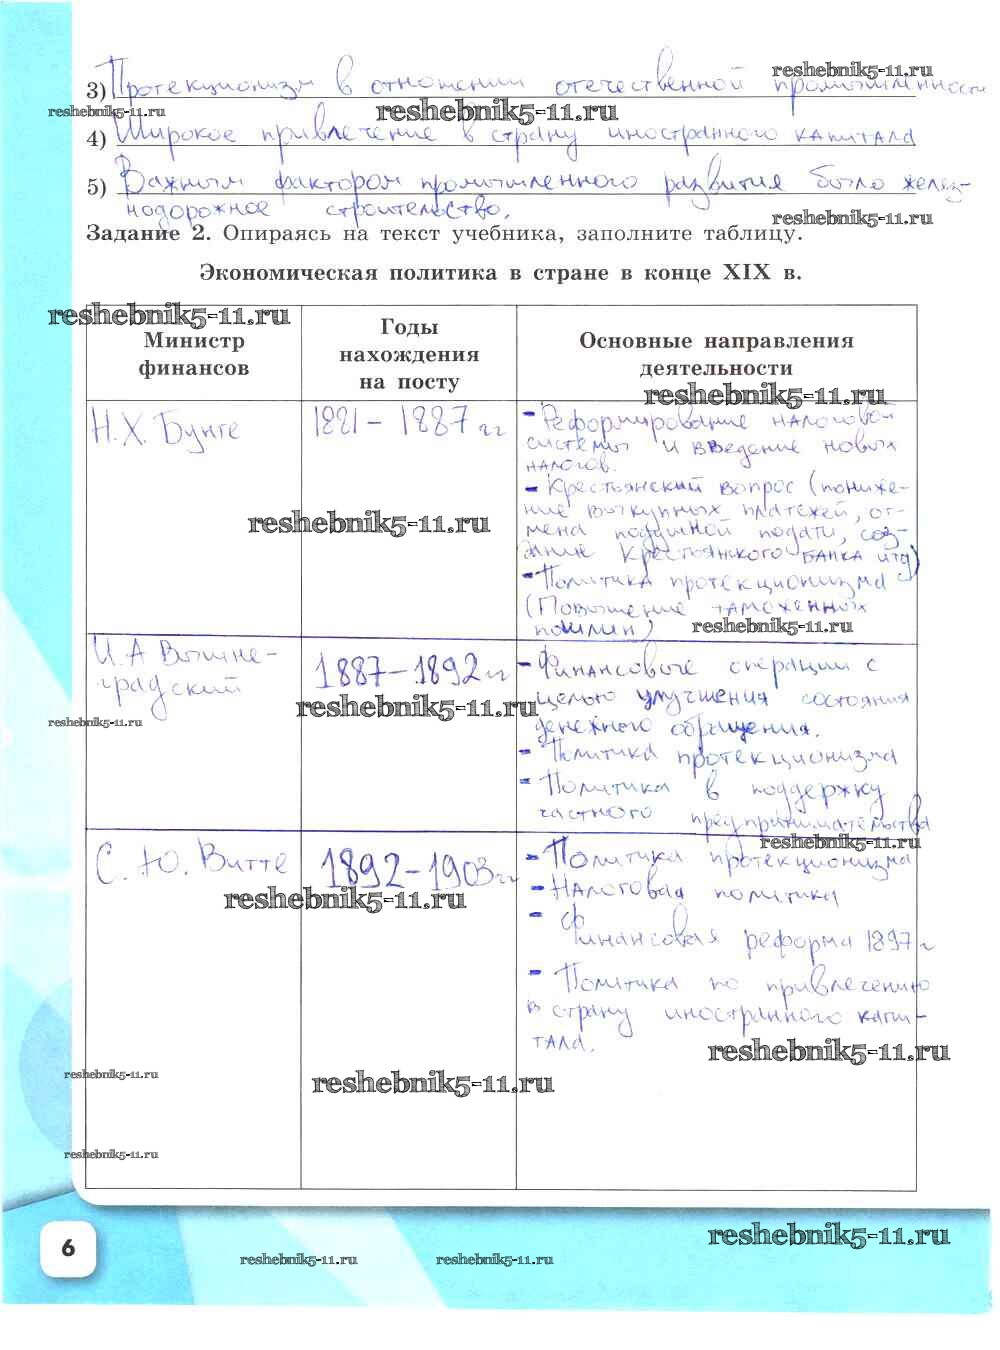 3) Протекционизм в отношении отечественной промышленности
reshebnik5-11.ru
reshebnik5-11.ru
reshebnik5-11.ru
4) Широкое привлечение в страну иностранного капитала
5) Важным фактором промышленного развития было желез-
нодорожное строительство.
reshebnik5-11.ru
Задание 2. Опираясь на текст учебника, заполните таблицу.
Экономическая политика в стране в конце XIX в.
reshebnik5-11.ru
Министр
финансов
Годы
нахождения
на посту
Основные направления
деятельности
reshebnik5-11.ru
Н.Х. Бунге
1881 – 1887 гг
- Реформирование налоговой
системы и введение новых
налогов.
- Крестьянский вопрос (пониже-
ние выкупных платежей, от-
мена подушной подати, соз-
дание Крестьянского банка итд)
- Политика протекционизма
(Повышение таможенных
пошлин)
reshebnik5-11.ru
reshebnik5-11.ru
И.А Вышне-
градский
1887 – 1892 гг
- Финансовые операции с
целью улучшения состояния
денежного обращения.
- Политика протекционизма
- Политика в поддержку
частного предпринимательства
reshebnik5-11.ru
reshebnik5-11.ru
reshebnik5-11.ru
С. Ю. Витте
1892 – 1903 гг
- Политика протекционизма
- Налоговая политика
- Финансовая реформа 1897 г
- Политика по привлечению
в страну иностранного капи-
тала.
reshebnik5-11.ru
reshebnik5-11.ru
reshebnik5-11.ru
reshebnik5-11.ru
reshebnik5-11.ru
6
reshebnik5-11.ru
reshebnik5-11.ru
reshebnik5-11.ru